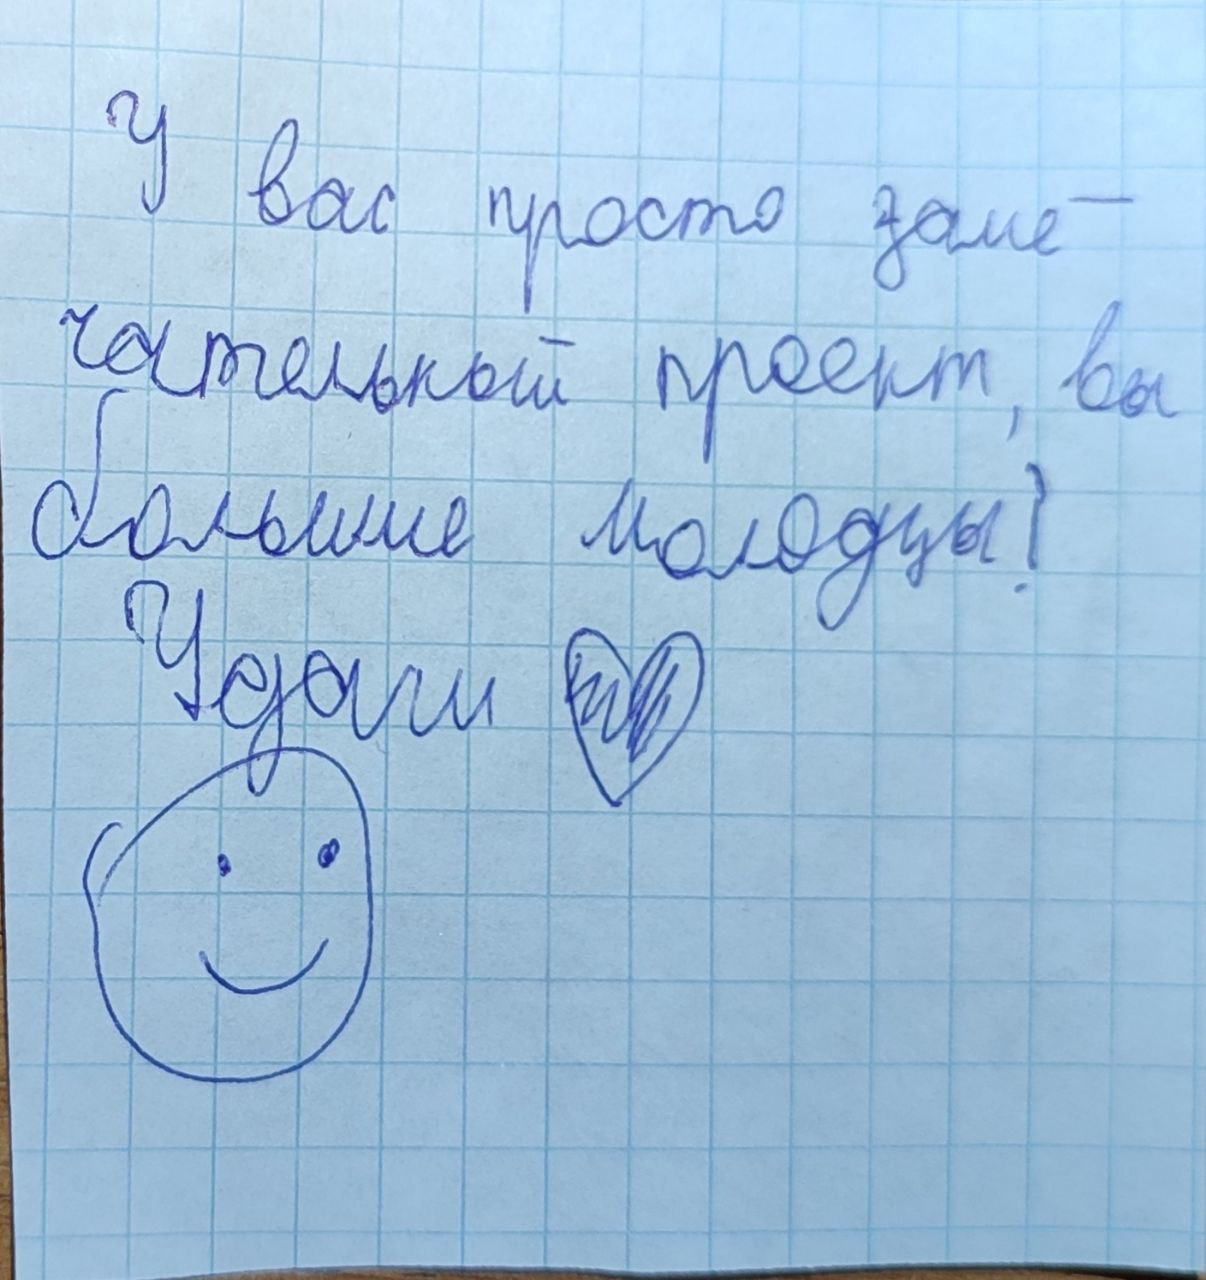 У вас просто заме-
чательный проект, вы
большие молодцы!
Удачи